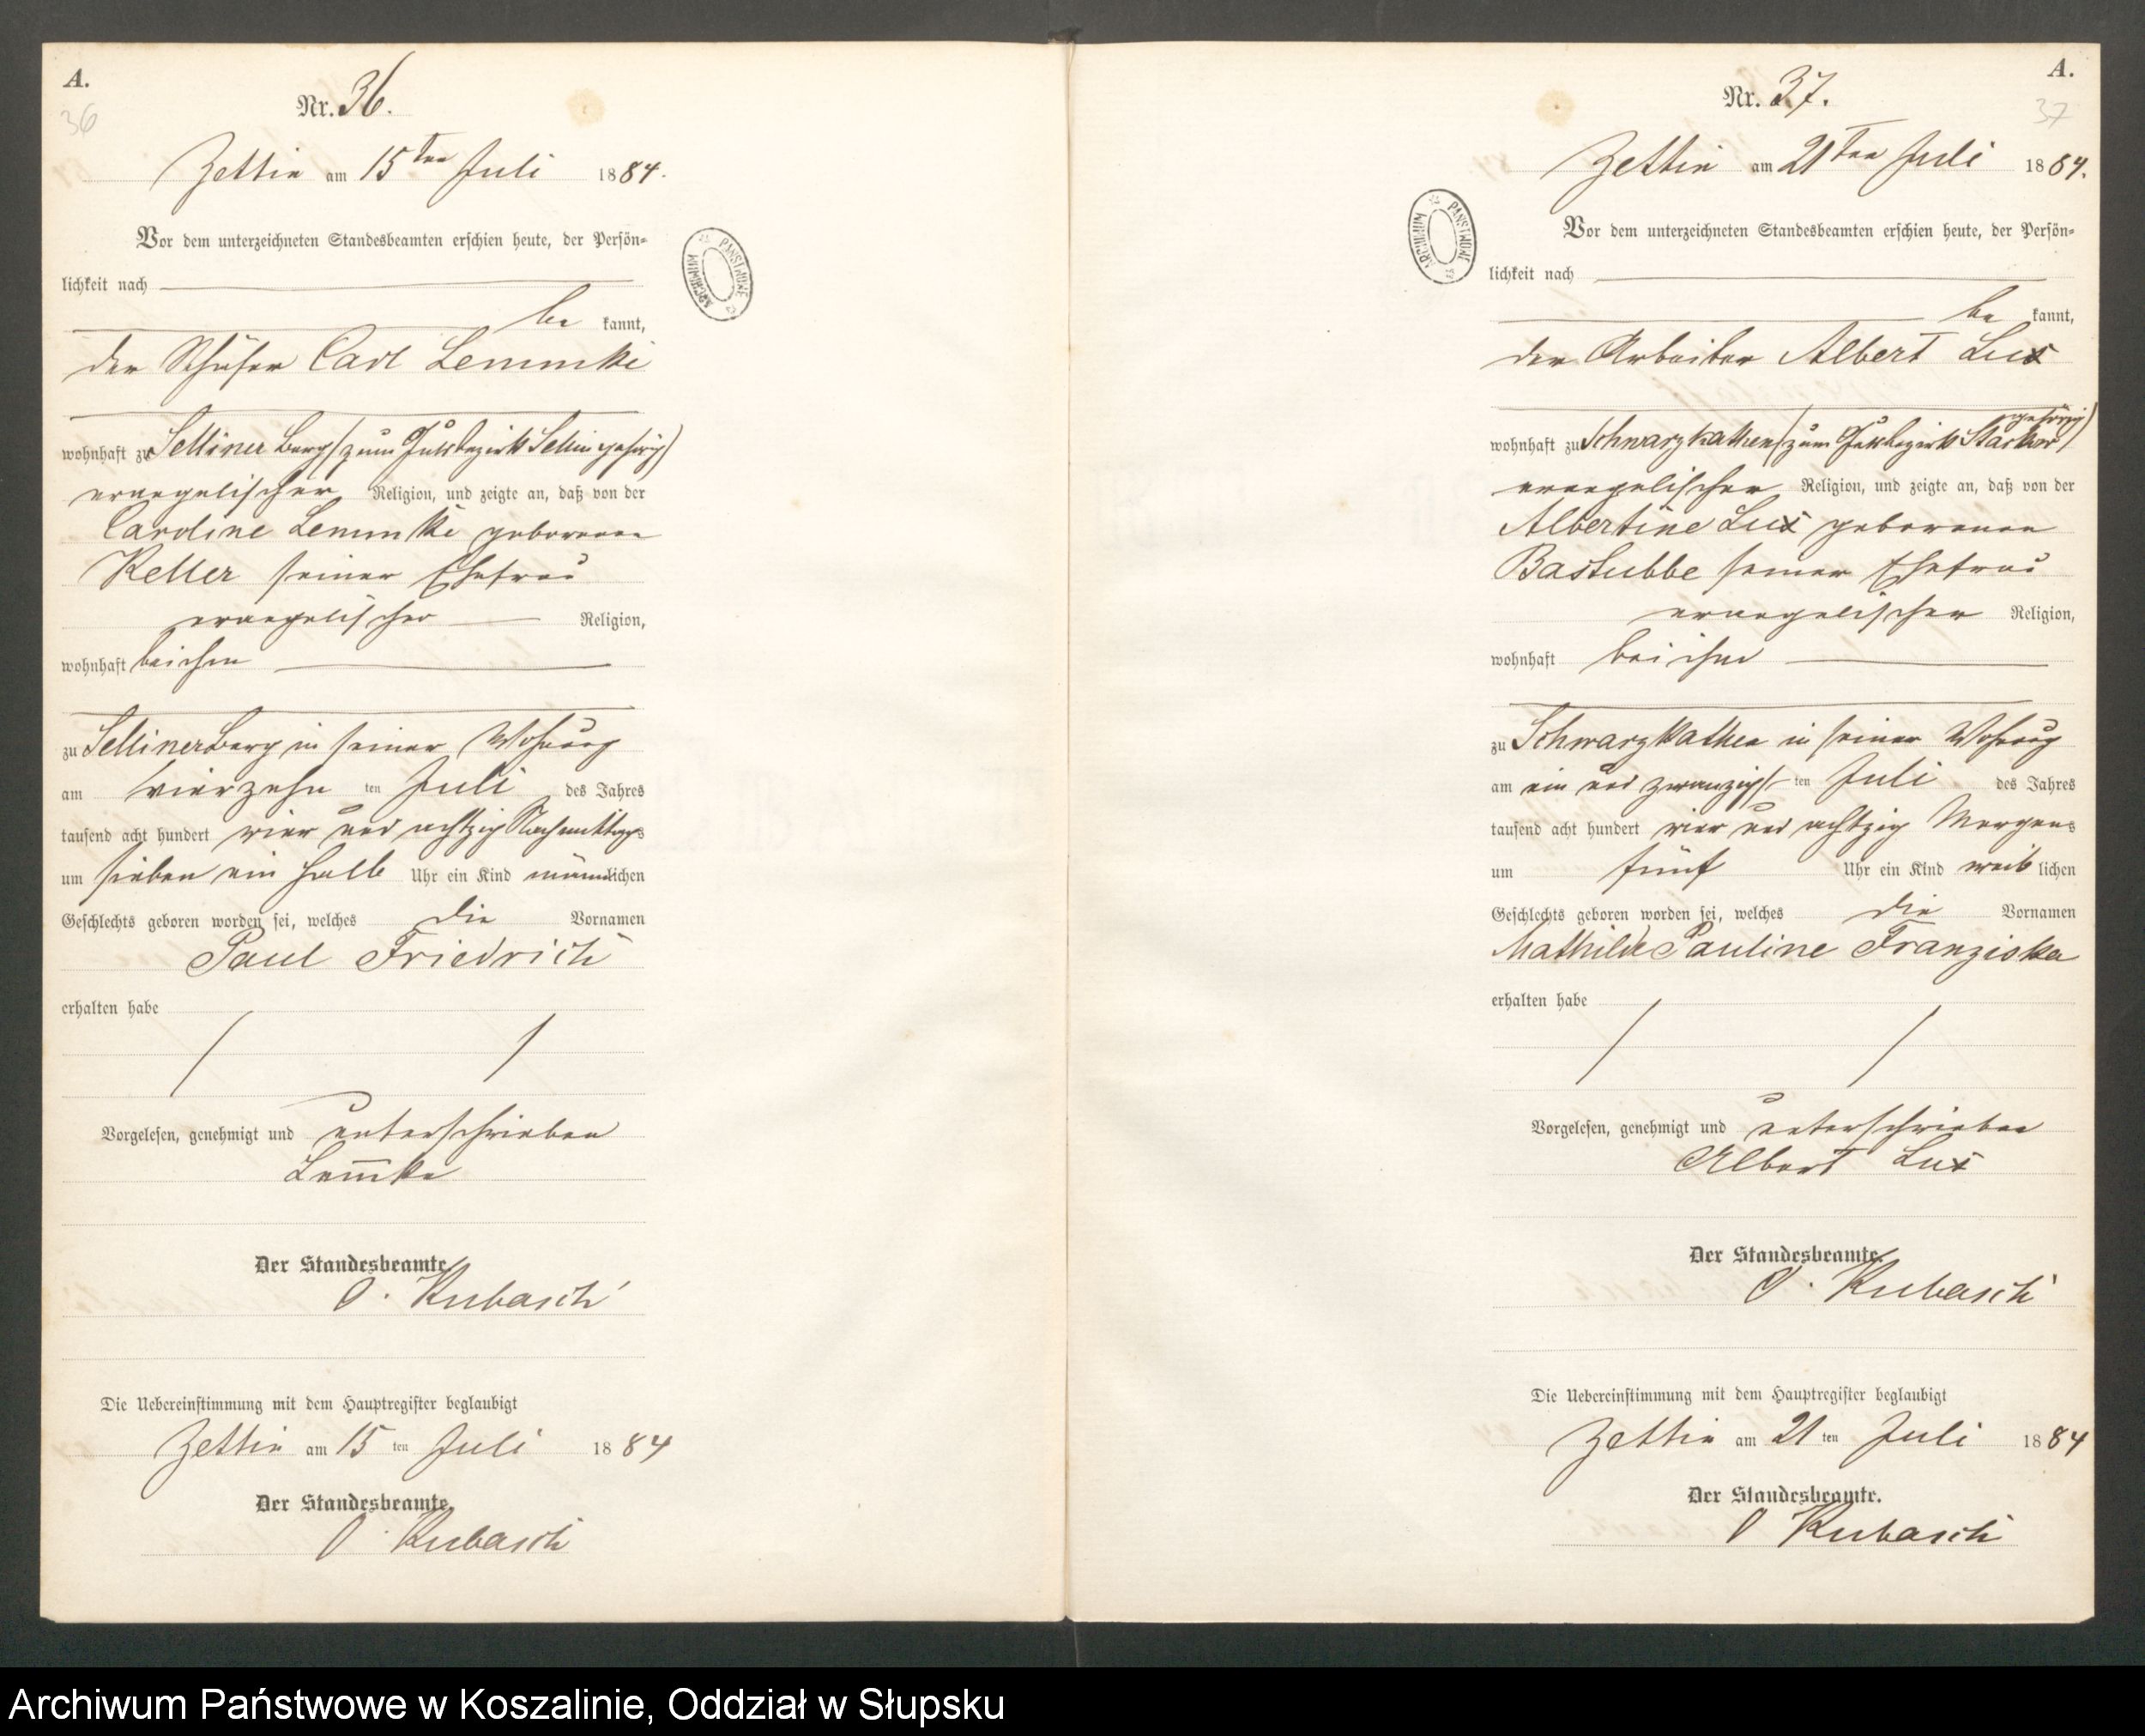 A.
36
Nr. 36.
Zettin am 15ten Juli 1884.
Vor dem unterzeichneten Standesbeamten erschien heute, der Persön-
lichkeit nach
be kannt,
der Schäfer Carl Lemmke
wohnhaft zu Selliner Berg (zum Gutsbezirk Sellin gehörig)
evangelischer Religion, und zeigte an, daß von der
Caroline Lemmke geborenen
Keller seiner Ehefrau
evangelischer Religion,
wohnhaft bei ihm
zu Selliner Berg in seiner Wohnung
am vierzehn ten Juli des Jahres
tausend acht hundert vier und achtzig Nachmittags
um sieben ein halb Uhr ein Kind männlichen
Geschlechts geboren worden sei, welches die Vornamen
Paul Friedrich
erhalten habe
Vorgelesen, genehmigt und unterschrieben
Lem̅ke
Der Standesbeamte.
O. Kubasch
Die Uebereinstimmung mit dem Hauptregister beglaubigt
Zettin am 15 ten Juli 1884
Der Standesbeamte.
O. Kubasch
ARCHIWUM PAŃSTWOWE
A.
37
Nr. 37.
Zettin am 21ten Juli 1884.
Vor dem unterzeichneten Standesbeamten erschien heute, der Persön-
lichkeit nach
be kannt,
der Arbeiter Albert Lux
wohnhaft zu Schwarzkathen (zum Gutsbezirk Starkow gehörig)
evangelischer Religion, und zeigte an, daß von der
Albertine Lux geborenen
Bastubbe seiner Ehefrau
evangelischer Religion,
wohnhaft bei ihm
zu Schwarzkathen in seiner Wohnung
am ein und zwanzigs ten Juli des Jahres
tausend acht hundert vier und achtzig Morgens
um fünf Uhr ein Kind weib lichen
Geschlechts geboren worden sei, welches die Vornamen
Mathilde Pauline Franziska
erhalten habe
Vorgelesen, genehmigt und unterschrieben
Albert Lux
Der Standesbeamte.
O. Kubasch
Die Uebereinstimmung mit dem Hauptregister beglaubigt
Zettin am 21 ten Juli 1884
Der Standesbeamte.
O Kubasch
ARCHIWUM PAŃSTWOWE
Archiwum Państwowe w Koszalinie, Oddział w Słupsku